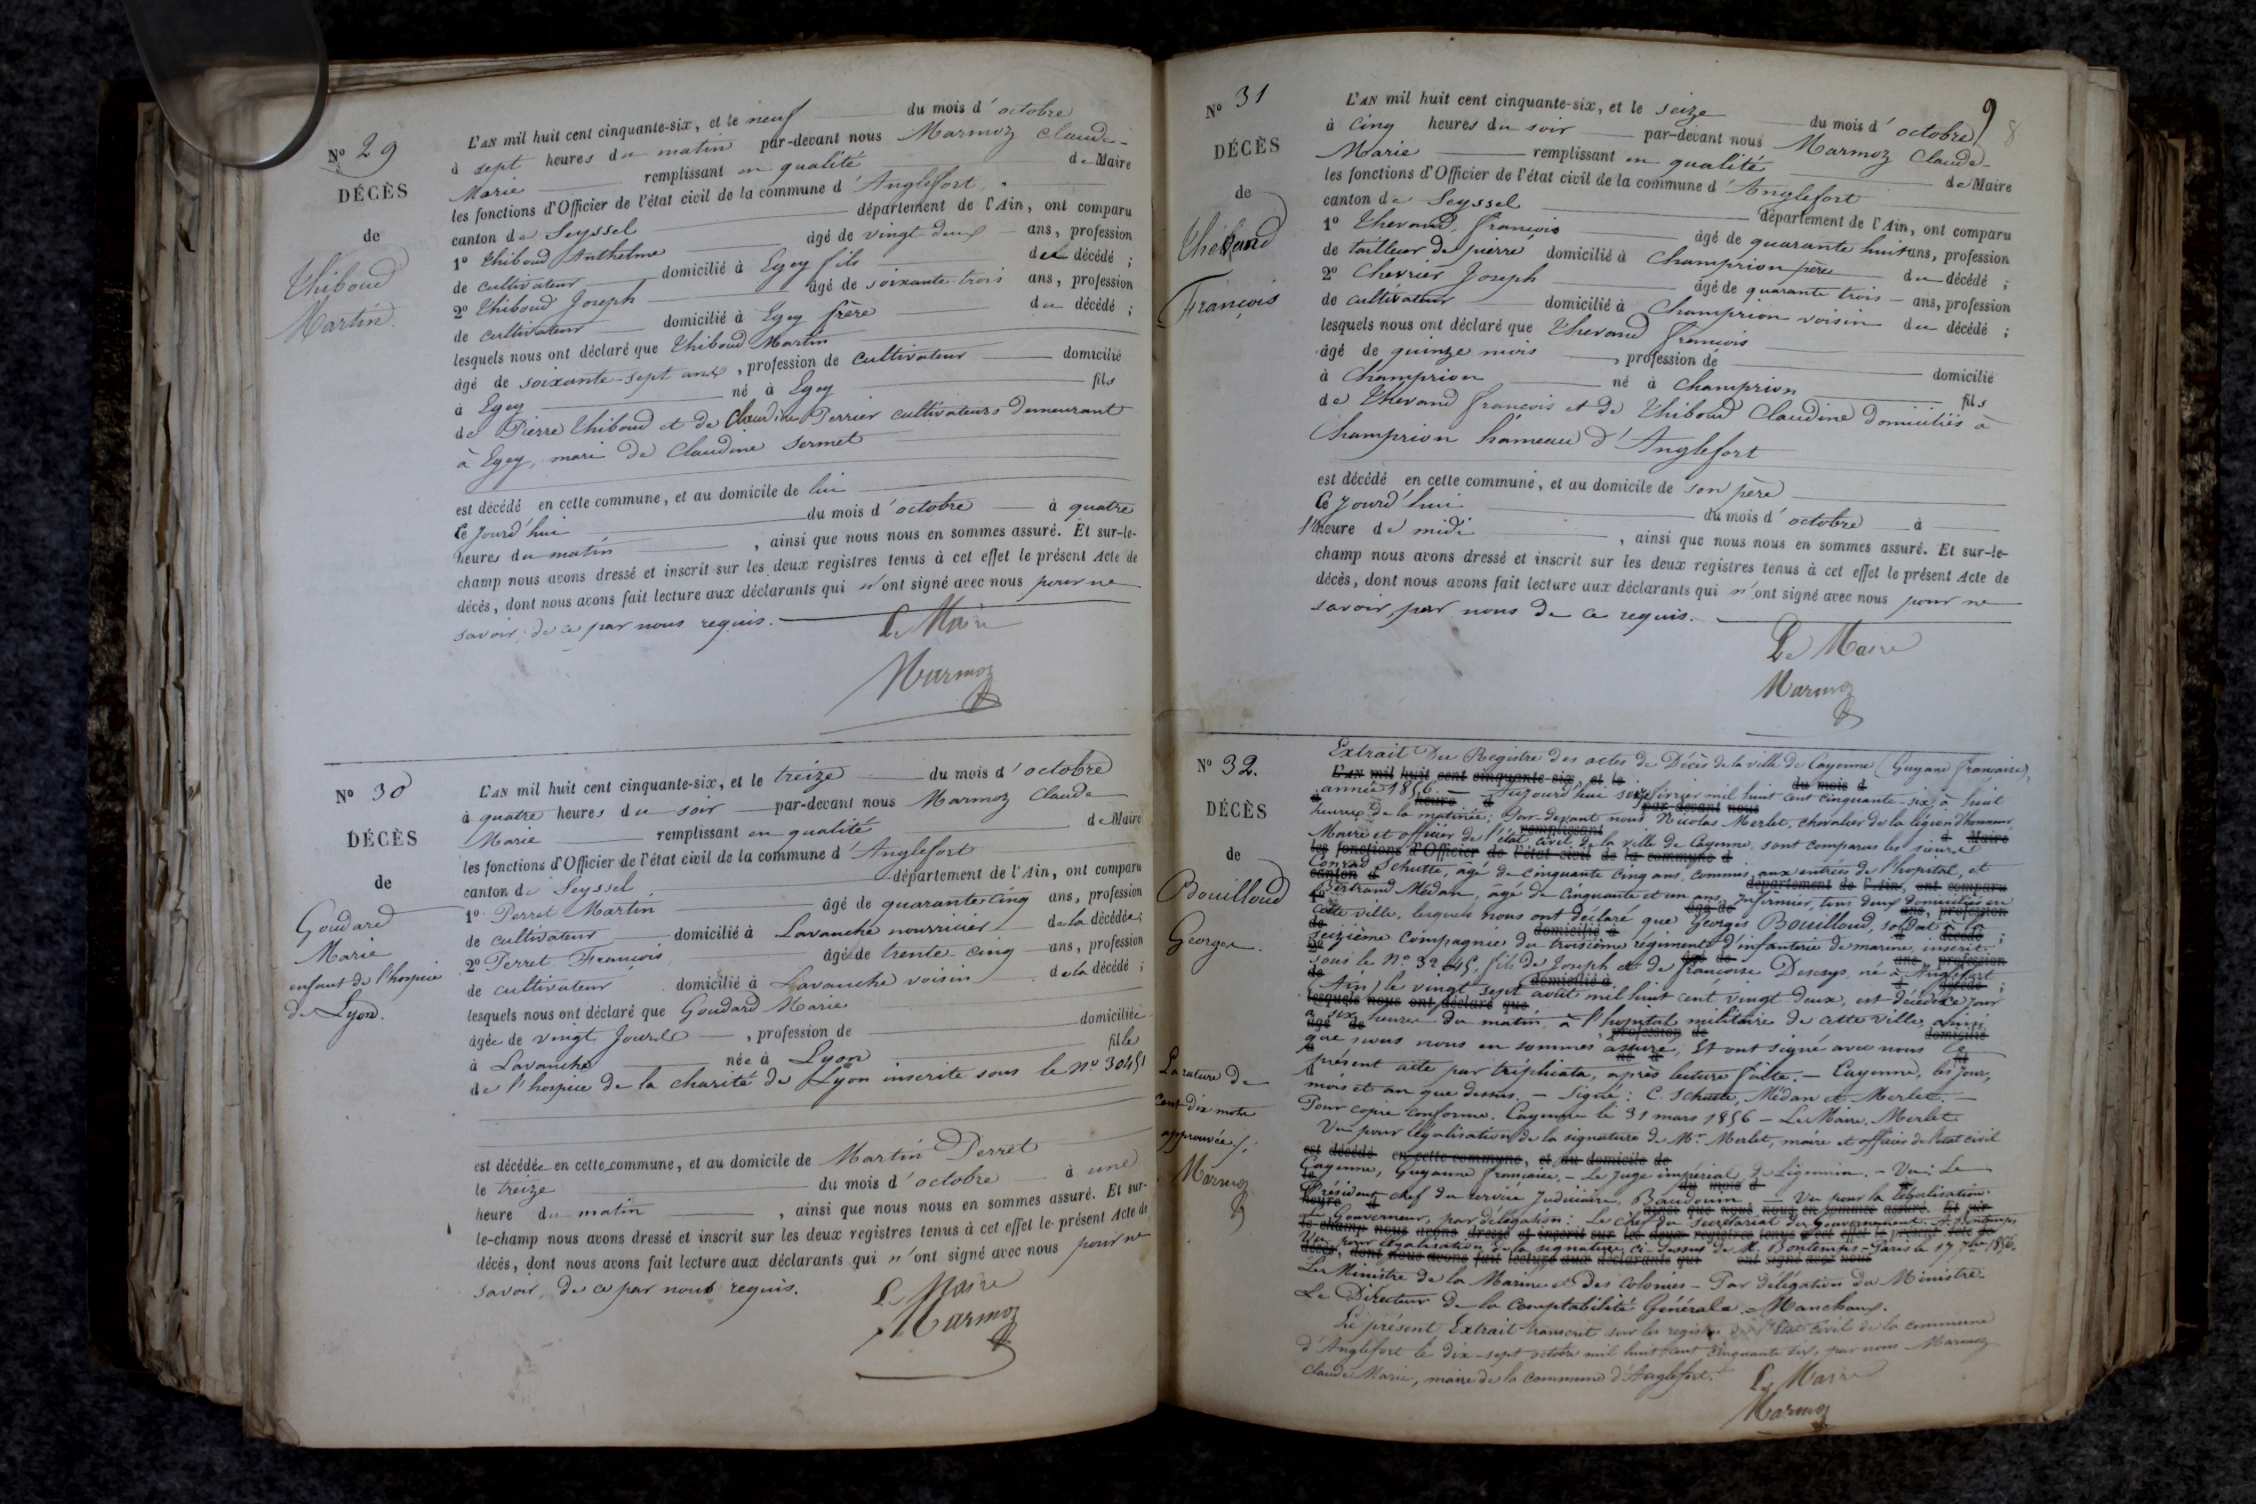 Nº 29
DÉCÈS
de
Thiboud
Martin
L'AN mil huit cent cinquante-six, et le neuf du mois d'octobre
à sept heures du matin par-devant nous Marmoz Claude-
Marie remplissant en qualité de Maire
les fonctions d'Officier de l'état civil de la commune d'Anglefort
canton de Seyssel département de l'Ain, ont comparu
1º Thiboud Anthelme âgé de vingt deux ans, profession
de cultivateur domicilié à Egey fils du décédé ;
2º Thiboud Joseph âgé de soixante trois ans, profession
de cultivateur domicilié à Egey frère du décédé ;
lesquels nous ont déclaré que Thiboud Martin
âgé de soixante-sept ans, profession de cultivateur domicilié
à Egey né à Egey fils
de Pierre Thiboud et de Claudine Perrier cultivateurs demeurant
à Egey, mari de Claudine Sermet
est décédé en cette commune, et au domicile de lui
Ce jourd'hui du mois d'octobre à quatre
heures du matin, ainsi que nous nous en sommes assuré. Et sur-le-
champ nous avons dressé et inscrit sur les deux registres tenus à cet effet le présent Acte de
décès, dont nous avons fait lecture aux déclarants qui n'ont signé avec nous pour ne
savoir, de ce par nous requis.
Le Maire
Marmoz
Nº 30
DÉCÈS
de
Goudard
Marie
enfant de l'hospice
de Lyon.
L'AN mil huit cent cinquante-six, et le treize du mois d'octobre
à quatre heures du soir par-devant nous Marmoz Claude
Marie remplissant en qualité de Maire
les fonctions d'Officier de l'état civil de la commune d'Anglefort
canton de Seyssel département de l'Ain, ont comparu
1º Perret Martin âgé de quarante cinq ans, profession
de cultivateur domicilié à Lavanche nourricier de la décédée ;
2º Perret François âgé de trente cinq ans, profession
de cultivateur domicilié à Lavanche voisin de la décédé ;
lesquels nous ont déclaré que Goudard Marie
âgée de vingt jours, profession de domiciliée
à Lavanche née à Lyon fille
de l'hospice de la charité de Lyon inscrite sous le Nº 3045
est décédée en cette commune, et au domicile de Martin Perret
le treize du mois d'octobre à une
heure du matin, ainsi que nous nous en sommes assuré. Et sur-
le-champ nous avons dressé et inscrit sur les deux registres tenus à cet effet le présent Acte de
décès, dont nous avons fait lecture aux déclarants qui n'ont signé avec nous pour ne
savoir, de ce par nous requis.
Le Maire
Marmoz
9
8
Nº 31
DÉCÈS
de
Thévand
François
L'AN mil huit cent cinquante-six, et le seize du mois d'octobre
à cinq heures du soir par-devant nous Marmoz Claude-
Marie remplissant en qualité de Maire
les fonctions d'Officier de l'état civil de la commune d'Anglefort
canton de Seyssel département de l'Ain, ont comparu
1º Thevand, françois âgé de quarante huit ans, profession
de tailleur de pierre domicilié à Champrion père du décédé ;
2º Chevrier Joseph âgé de quarante trois ans, profession
de cultivateur domicilié à Champrion voisin du décédé ;
lesquels nous ont déclaré que Thevand françois
âgé de quinze mois, profession de domicilié
à Champrion né à Champrion fils
de Thevand françois et de Thiboud Claudine domiciliés à
Champrion hameau d'Anglefort
est décédé en cette commune, et au domicile de son père
Ce jourd'hui du mois d'octobre à
l'heure de midi, ainsi que nous nous en sommes assuré. Et sur-le-
champ nous avons dressé et inscrit sur les deux registres tenus à cet effet le présent Acte de
décès, dont nous avons fait lecture aux déclarants qui n'ont signé avec nous pour ne
savoir, par nous de ce requis.
Le Maire
Marmoz
Nº 32.
DÉCÈS
de
Bouilloud
Georges.
La rature de
cent dix mots
approuvée
Marmoz
Extrait Du Registre des actes de Décès de la ville de Cayenne (Guyane française),
année 1856. — Aujourd'hui seize février mil huit cent cinquante-six, à huit
heures de la matinée ; Par devant nous Nicolas Merlet, chevalier de la légion d'honneur
Maire et officier de l'état civil de la ville de Cayenne, sont comparus les sieurs
Conrad Schutte, âgé de cinquante cinq ans, commis aux entrées de l'hôpital, et
Bertrand Médan, âgé de cinquante et un ans, Infirmier, tous deux domiciliés en
cette ville, lesquels nous ont déclaré que Georges Bouilloud, soldat à la
seizième Compagnie du troisième régiment d'infanterie de marine, inscrit
sous le Nº 32 045, fils de Joseph et de françoise Descays, né à Anglefort
(Ain) le vingt sept août mil huit cent vingt deux, est décédé ce jour
à six heures du matin, à l'hopital militaire de cette ville, ainsi
que nous nous en sommes assuré, Et ont signé avec nous le
présent acte par triplicata, après lecture faite. — Cayenne, les jour,
mois et an que dessus. — Signé : C. Schutte, Médan et Merlet. —
Pour copie conforme. Cayenne le 31 mars 1856 — Le Maire, Merlet
Vu pour légalisation de la signature de Mr Merlet, maire et officier de l'état civil
Cayenne, Guyanne française. — Le Juge impérial, — Vu : Le
Président chef du service Judiciaire, Baudouin. — Vu pour la légalisation
Le Gouverneur, par délégation : Le chef du Secrétariat du Gouvernement, A. Bontemps
Vu pour légalisation de la signature ci-dessus de M. Bontemps - Paris le 17 7bre 1856.
Le Ministre de la Marine et des Colonies — Par délégation du Ministre
Le Directeur de la Comptabilité Générale. Manchaux.
Le présent Extrait transcrit sur les registres de l'état civil de la commune
d'Anglefort le dix-sept octobre mil huit cent cinquante six, par nous Marmoz
Claude Marie, maire de la commune d'Anglefort.
Le Maire
Marmoz